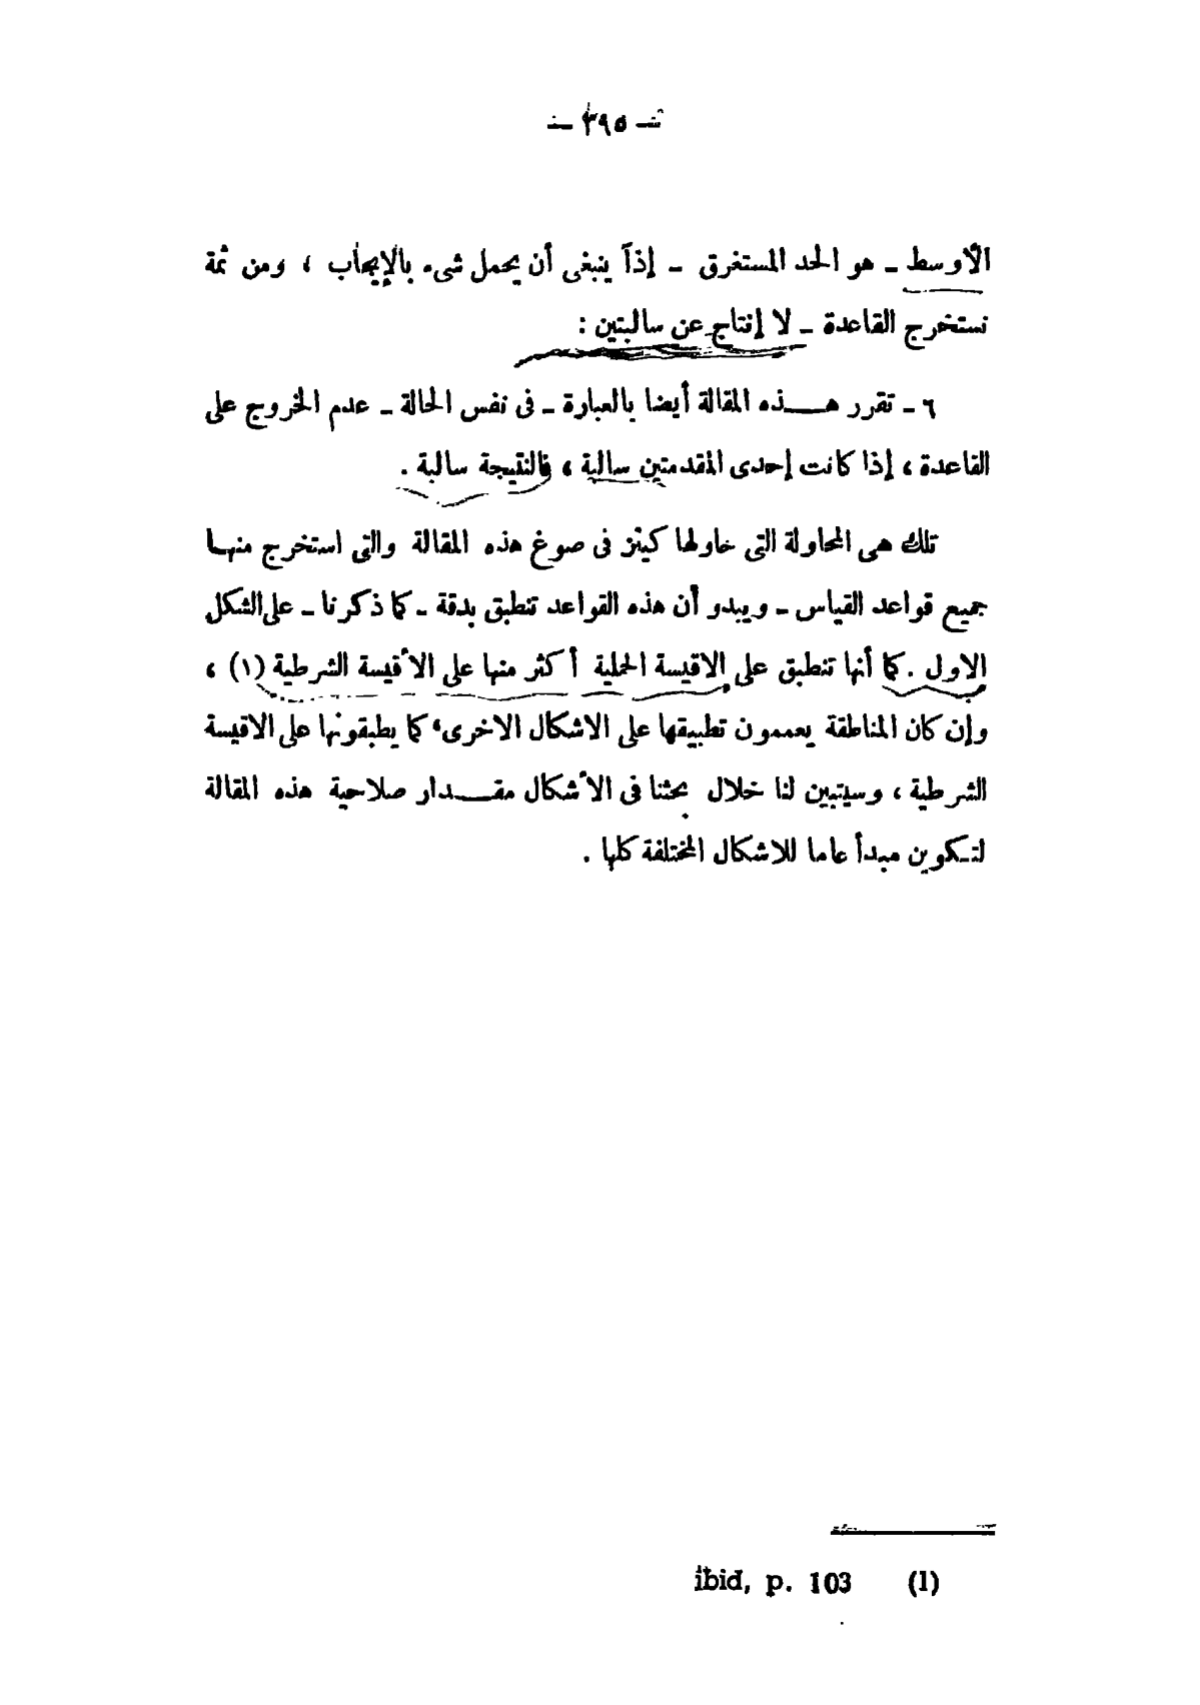 — ٣٩٥ —
الأوسط ـ هو الحد المستغرق ـ إذاً ينبغى أن يحمل شىء بالإيجاب ، ومن ثمة
نستخرج القاعدة ـ لا إنتاج عن سالبتين :
٦ ـ تقرر هـــذه المقالة أيضا بالعبارة ـ فى نفس الحالة ـ عدم الخروج على
القاعدة ، إذا كانت إحدى المقدمتين سالبة ، فالنتيجة سالبة .
تلك هى المحاولة التى حاولها كينز فى صوغ هذه المقالة والتى استخرج منهـا
جميع قواعد القياس ـ ويبدو أن هذه القواعد تنطبق بدقة ـ كما ذكرنا ـ على الشكل
الاول . كما أنها تنطبق على الاقيسة الحملية أكثر منها على الأقيسة الشرطية (١) ،
وإن كان المناطقة يعممون تطبيقها على الاشكال الاخرى، كما يطبقونها على الاقيسة
الشرطية ، وسيتبين لنا خلال بحثنا فى الأشكال مقـــدار صلاحية هذه المقالة
لتـكوين مبدأ عاما للاشكال المختلفة كلها .
ibid, p. 103 (1)